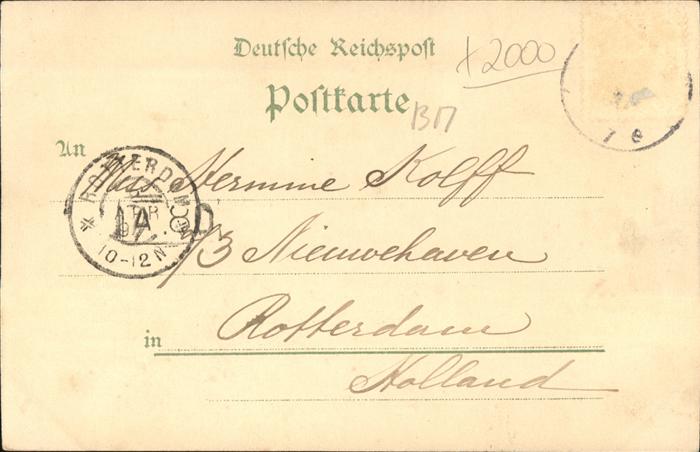 Deutsche Reichspost
Postkarte
2000
ВП
An
Miss Hermine Kolff
13 Nieuwehaven
in Rotterdam
Holland
ROTTERDAM
10-12N
7 8